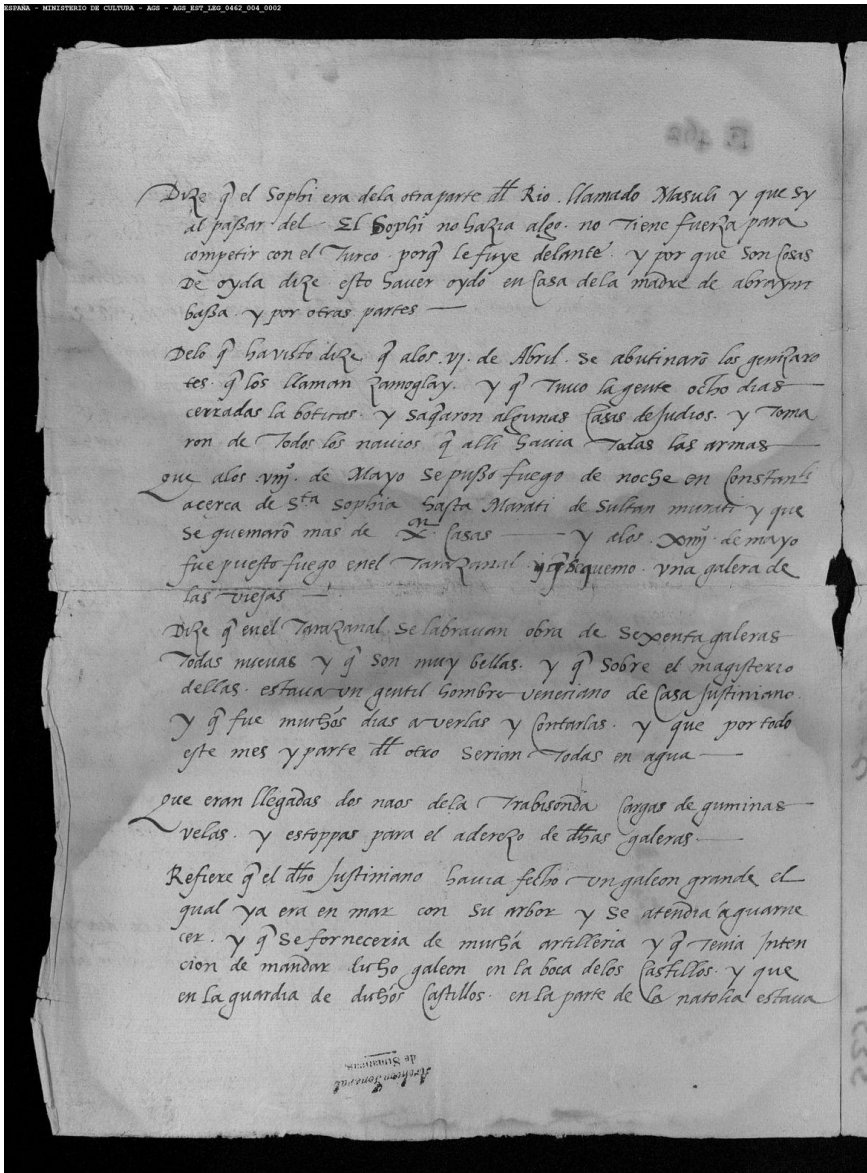 ESPAÑA - MINISTERIO DE CULTURA - AGS - AGS_EST_LEG_0462_004_0002
E. 462
Dize q̃ el Sophi era dela otra parte dłł Rio. llamado Masuli y que sy
al paßar del El Sophi no hazia algo. no tiene fuerza para
competir con el Turco. porq̃ le fuye delante. y por que son cosas
De oyda dize esto haver oydo en casa dela madre de abraym
baßa. y por otras partes —
Delo q̃ ha visto dize q̃ alos .vj. de Abril. Se abutinarõ los genizaro
tes. q̃ los llaman zamoglay. y q̃ tuvo la gente ocho dias
cerradas la boticas. y saq̃aron algunas casas de judios. y toma
ron de todos los navios q̃ alli havia todas las armas —
Que alos .viijº. de Mayo se pußo fuego de noche en Constantli
acerca de Sta Sophia hasta Marati de Sultan murati y que
se quemarõ mas de X.M casas — y alos .xiiij. de mayo
fue puesto fuego enel Tarazanal. y q̃ se quemo. una galera de
las viejas —
Dize q̃ enel Tarazanal se labravan obra de sexenta galeras
todas nuevas y q̃ son muy bellas. y q̃ sobre el magisterio
dellas. estava un gentil hombre veneciano de casa justiniano.
y q̃ fue muchos dias a verlas y contarlas. y que por todo
este mes y parte dłł otro serian todas en agua —
Que eran llegadas dos naos dela Trabisonda cargas de guminas
velas. y estoppas para el aderezo de dhas galeras. —
Refiere q̃ el dho justiniano havia fecho un galeon grande el
qual ya era en mar con su arbor y se atendia a guarne
cer. y q̃ se forneceria de mucha artilleria y q̃ tenia inten
cion de mandar dicho galeon en la boca delos castillos. y que
en la guardia de dichos castillos. en la parte de la natolia estava
Archivo General
de Simancas.